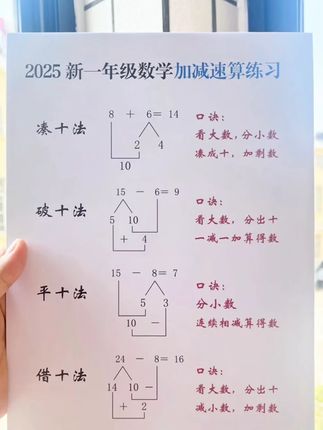 2025 新一年级数学加减速算练习
凑十法
8 + 6 = 14
2 4
10
口诀:
看大数,分小数
凑成十,加剩数
破十法
15 - 6 = 9
5 10
+ 4
口诀:
看大数,分出十
一减一加算得数
平十法
15 - 8 = 7
5 3
10 -
口诀:
分小数
连续相减算得数
借十法
24 - 8 = 16
14 10 -
+ 2
口诀:
看大数,分出十
减小数,加剩数